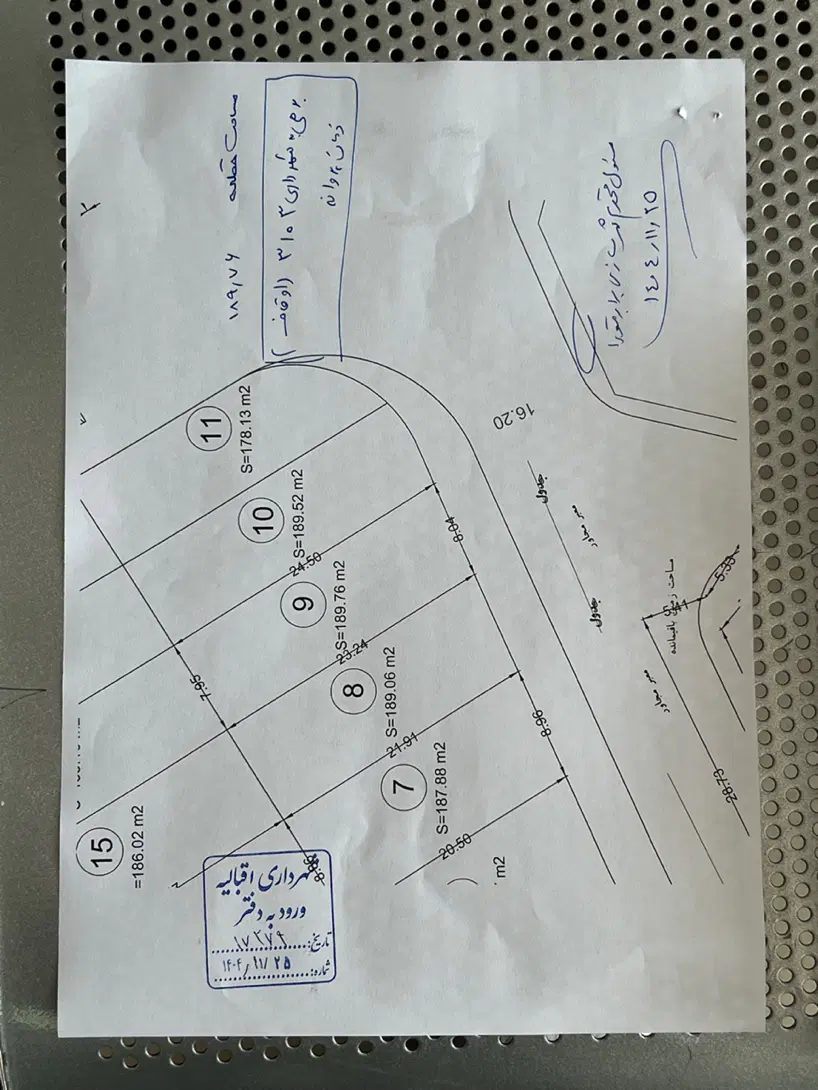 مساحت قطعه
۱۸۹٫۷۶
۳۱۰۳ (اوقاف)
۱۴۰۴٫۱۱٫۲۵
11
S=178.13 m2
10
S=189.52 m2
24.50
9
S=189.76 m2
23.24
8
S=189.06 m2
21.91
7
S=187.88 m2
20.50
m2
15
=186.02 m2
7.95
8.04
8.96
16.20
جدول
معبر مجاور
جدول
مساحت زمین باقیمانده
5.33
معبر مجاور
28.73
شهرداری اقبالیه
ورود به دفتر
تاریخ: ۱۷۲۷۹
شماره: ۱۴۰۴/۱۱/۲۵